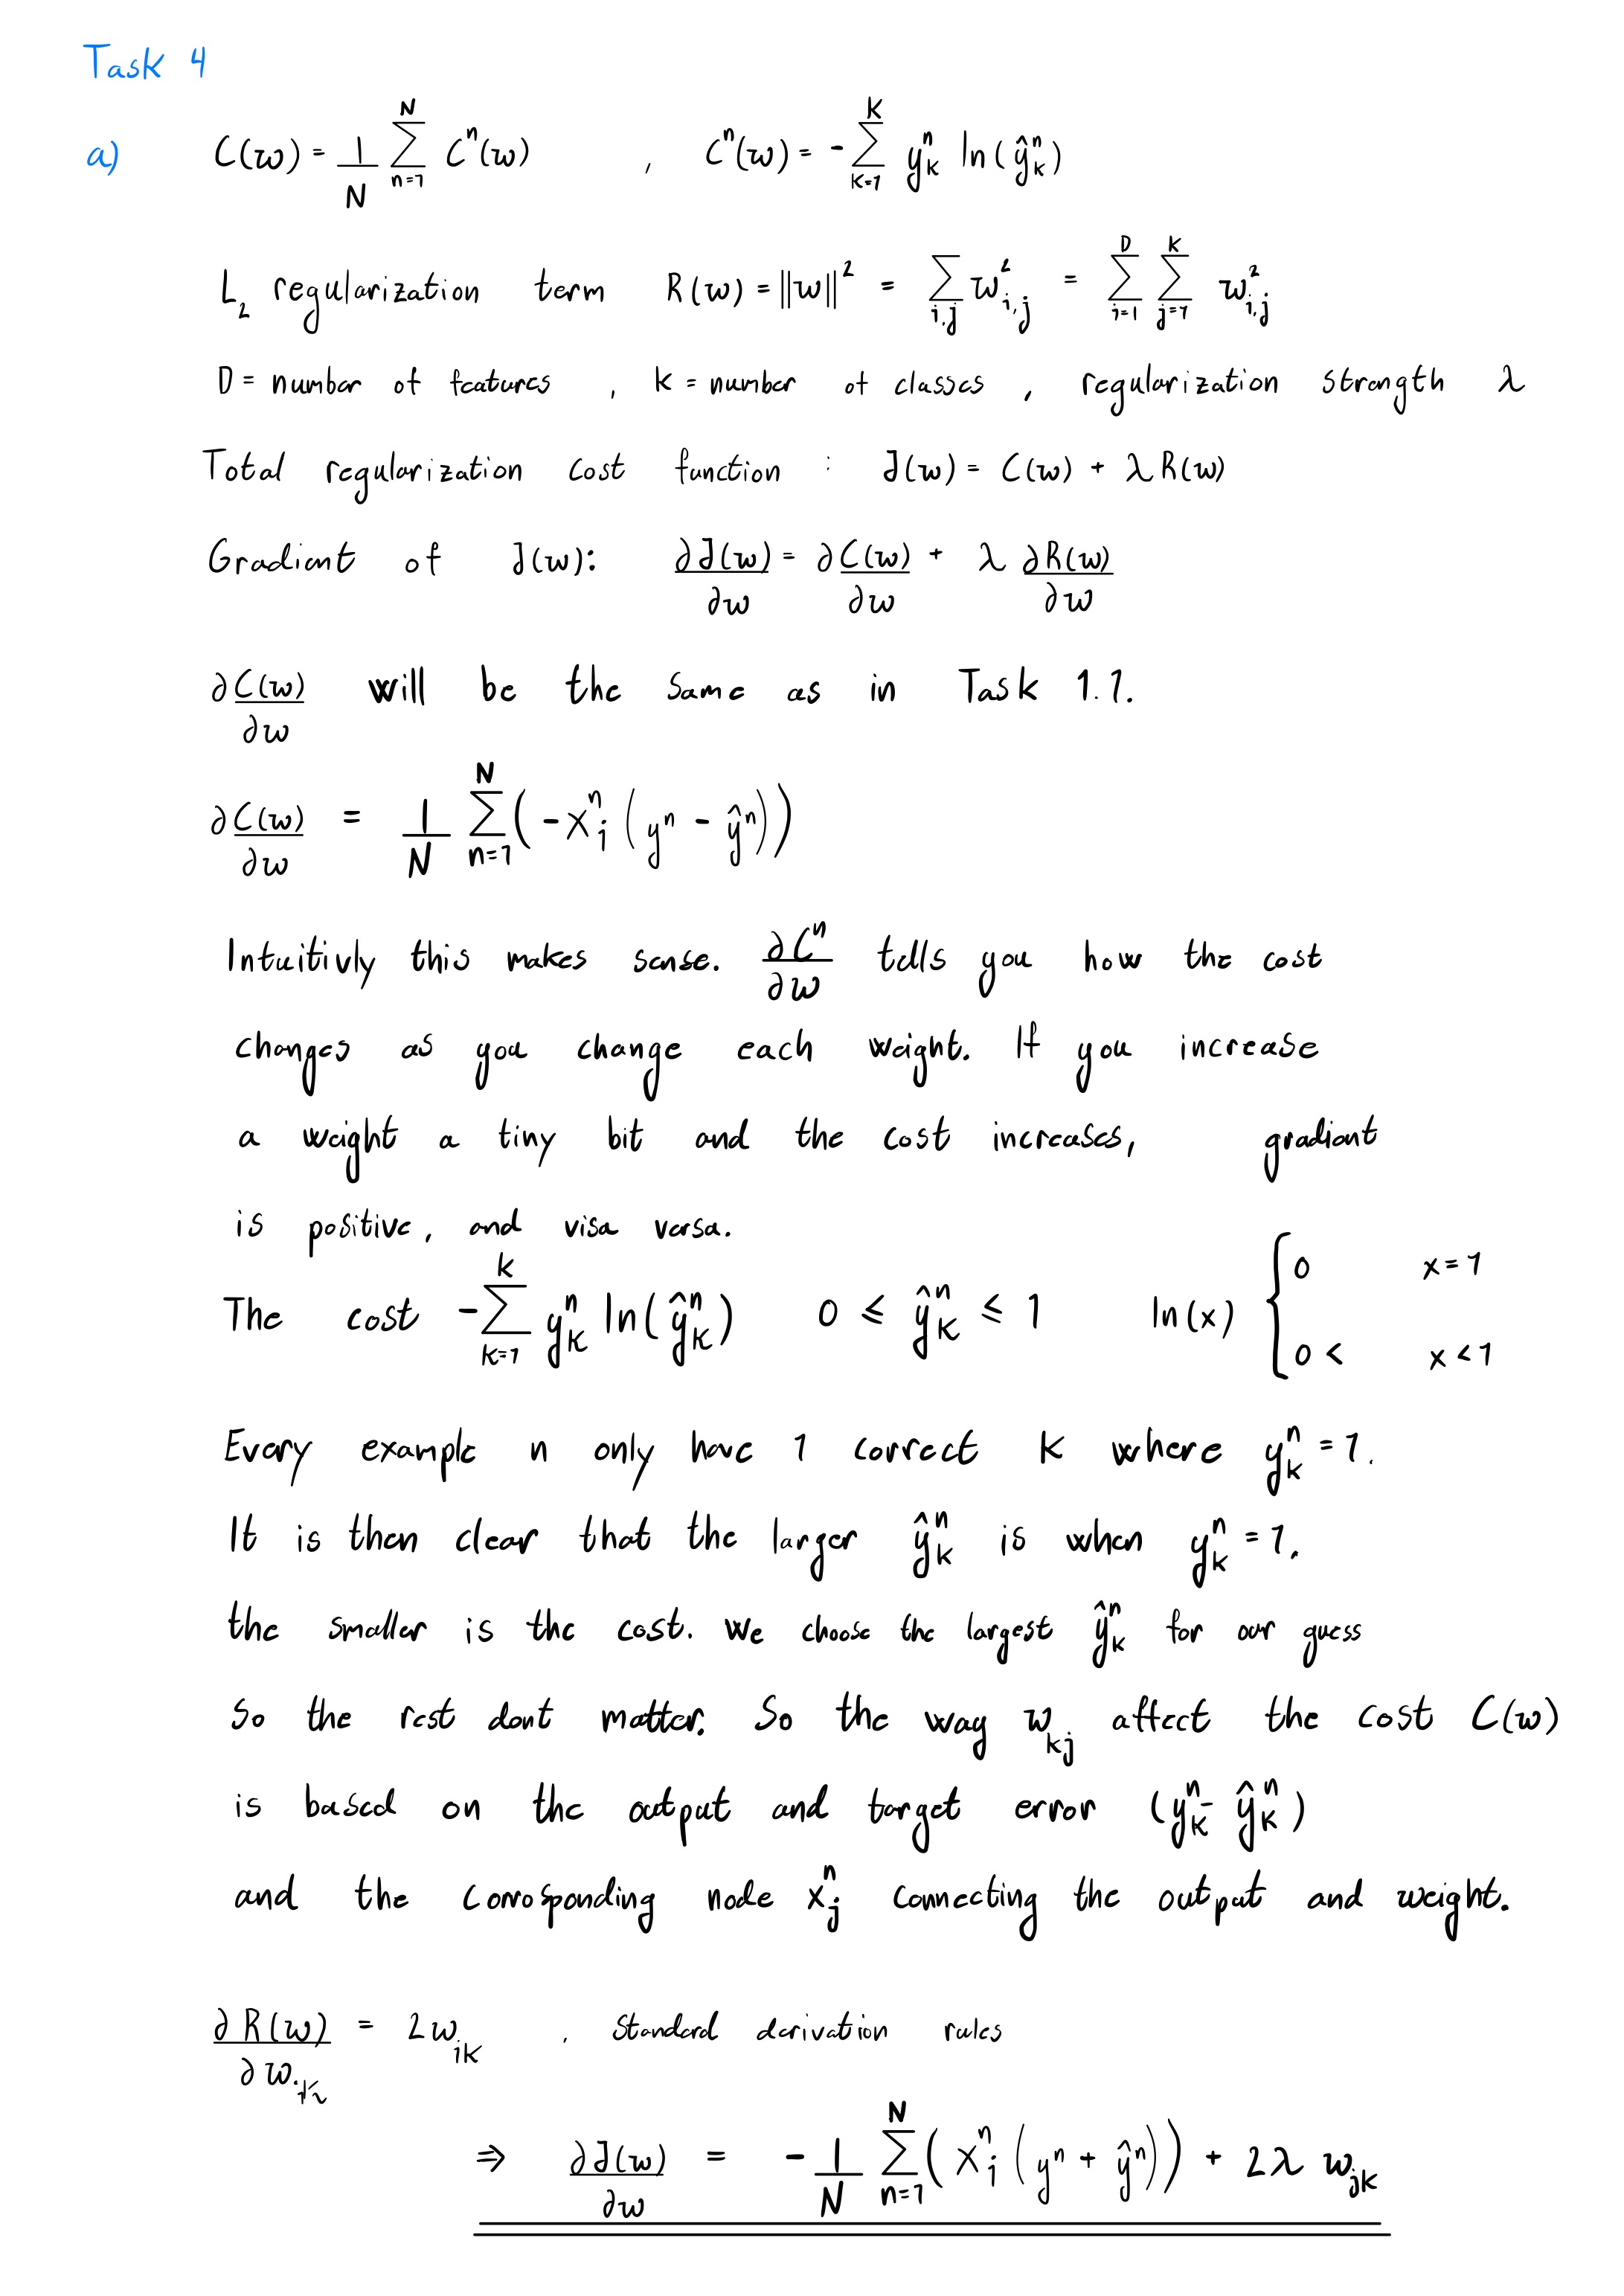 Task 4
a) C(w) = 1/N ∑_{n=1}^{N} C^n(w) , C^n(w) = -∑_{k=1}^{K} y_k^n ln(ŷ_k^n)
L_2 regularization term R(w) = ||w||^2 = ∑_{i,j} w_{i,j}^2 = ∑_{i=1}^{D} ∑_{j=1}^{K} w_{i,j}^2
D = number of features , K = number of classes , regularization strength λ
Total regularization cost function : J(w) = C(w) + λ R(w)
Gradient of J(w): ∂J(w)/∂w = ∂C(w)/∂w + λ ∂R(w)/∂w
∂C(w)/∂w will be the same as in Task 1.1.
∂C(w)/∂w = 1/N ∑_{n=1}^{N} (-x_j^n (y^n - ŷ^n))
Intuitivly this makes sense. ∂C^n/∂w tells you how the cost
changes as you change each weight. If you increase
a weight a tiny bit and the cost increases, gradient
is positive, and visa versa.
The cost -∑_{k=1}^{K} y_k^n ln(ŷ_k^n) 0 ≤ ŷ_k^n ≤ 1 ln(x) { 0 x=1
0 < x<1
Every example n only have 1 correct k where y_k^n = 1.
It is then clear that the larger ŷ_k^n is when y_k^n = 1.
the smaller is the cost. We choose the largest ŷ_k^n for our guess
so the rest dont matter. So the way w_{kj} affect the cost C(w)
is based on the output and target error (y_k^n - ŷ_k^n)
and the corrosponding node x_j^n connecting the output and weight.
∂R(w)/∂w = 2w_{jk} , standard derivation rules
⇒ ∂J(w)/∂w = -1/N ∑_{n=1}^{N} (x_j^n (y^n + ŷ^n)) + 2λ w_{jk}